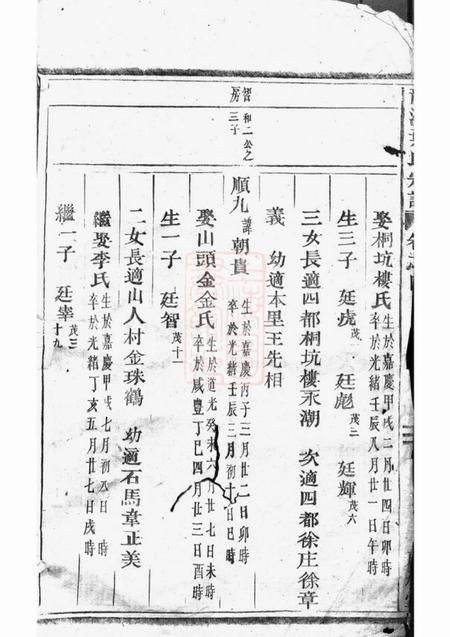 娶桐坑樓氏生於嘉慶甲戌二月廿四日卯時
卒於光緒壬辰八月廿一日午時
生三子 廷虎茂 廷彪茂三 廷輝茂六
三女長適四都桐坑樓永潮 次適四都徐庄徐章
義 幼適本里王先相
智房
和二公之三子
順九諱朝貴生於嘉慶丙子三月廿二日卯時
卒於光緒壬辰三月初十日巳時
娶山頭金金氏生於道光癸未六月廿七日未時
卒於咸豐丁巳四月廿三日酉時
生一子 廷智茂十一
二女長適山人村金珠鶴 幼適石馬章正美
繼娶李氏生於嘉慶甲戌七月初六日 時
卒於光緒丁亥五月廿七日戌時
繼一子 廷宰茂三十九